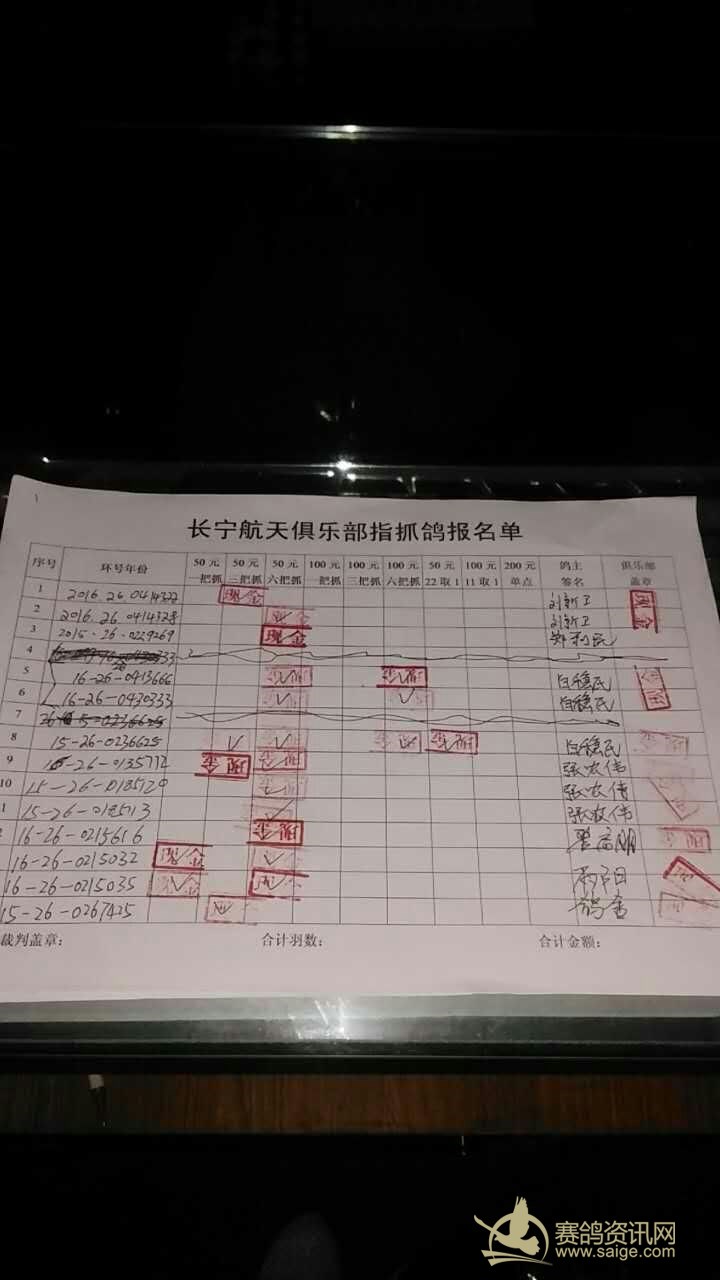 长宁航天俱乐部指抓鸽报名单
序号 环号年份 50元一把抓 50元三把抓 50元六把抓 100元一把抓 100元三把抓 100元六把抓 50元22取1 100元11取1 200元单点 鸽主签名 俱乐部盖章
1 2016.26.0414322 现金 刘新卫
2 2016.26.0414328 刘新卫
3 2015-26-0229269 现金 郑利民
4
5 16-26-0413666 现金 现金 白稳民
6 16-26-0430333 白稳民
7
8 15-26-0236625 现金 白稳民
9 15-26-0185772 现金 现金
10
15-26-
16-26-0215616 现金
16-26-0215032 现金
16-26-0215035 现金
15-26-0267425 鸽舍
裁判盖章: 合计羽数: 合计金额:
赛鸽资讯网
www.saige.com